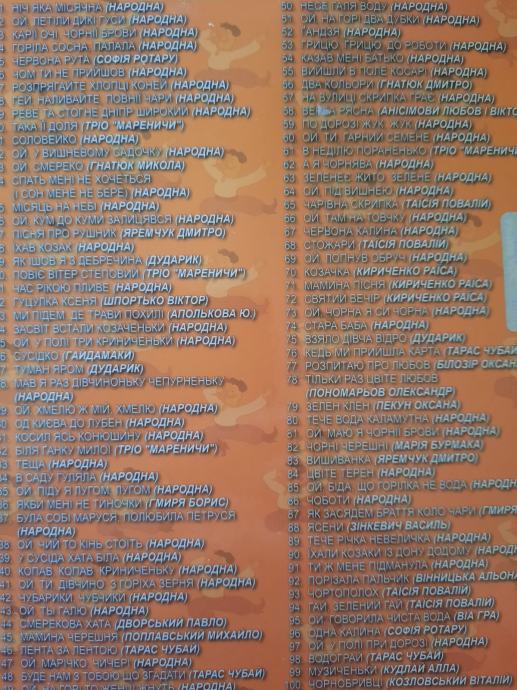 НІЧ ЯКА МІСЯЧНА (НАРОДНА)
ОЙ, ЛЕТІЛИ ДИКІ ГУСИ (НАРОДНА)
КАРІЇ ОЧІ, ЧОРНІЇ БРОВИ (НАРОДНА)
ГОРІЛА СОСНА, ПАЛАЛА (НАРОДНА)
ЧЕРВОНА РУТА (СОФІЯ РОТАРУ)
ЧОМ ТИ НЕ ПРИЙШОВ (НАРОДНА)
РОЗПРЯГАЙТЕ ХЛОПЦІ КОНЕЙ (НАРОДНА)
ГЕЙ, НАЛИВАЙТЕ ПОВНІЇ ЧАРИ (НАРОДНА)
РЕВЕ ТА СТОГНЕ ДНІПР ШИРОКИЙ (НАРОДНА)
ТАКА ЇЇ ДОЛЯ (ТРІО "МАРЕНИЧИ")
СОЛОВЕЙКО (НАРОДНА)
ОЙ, У ВИШНЕВОМУ САДОЧКУ (НАРОДНА)
ОЙ, СМЕРЕКО (ГНАТЮК МИКОЛА)
СПАТЬ МЕНІ НЕ ХОЧЕТЬСЯ
(І СОН МЕНЕ НЕ БЕРЕ) (НАРОДНА)
МІСЯЦЬ НА НЕБІ (НАРОДНА)
ОЙ, КУМ ДО КУМИ ЗАЛИЦЯВСЯ (НАРОДНА)
ПІСНЯ ПРО РУШНИК (ЯРЕМЧУК ДМИТРО)
ЇХАВ КОЗАК (НАРОДНА)
ЯК ІШОВ Я З ДЕБРЕЧИНА (ДУДАРИК)
ПОВІЄ ВІТЕР СТЕПОВИЙ (ТРІО "МАРЕНИЧИ")
ЧАС РІКОЮ ПЛИВЕ (НАРОДНА)
ГУЦУЛКА КСЕНЯ (ШПОРТЬКО ВІКТОР)
МИ ПІДЕМ, ДЕ ТРАВИ ПОХИЛІ (АПОЛЬКОВА Ю.)
ЗАСВІТ ВСТАЛИ КОЗАЧЕНЬКИ (НАРОДНА)
ОЙ, У ПОЛІ ТРИ КРИНИЧЕНЬКИ (НАРОДНА)
СУСІДКО (ГАЙДАМАКИ)
ТУМАН ЯРОМ (ДУДАРИК)
МАВ Я РАЗ ДІВЧИНОНЬКУ ЧЕПУРНЕНЬКУ
(НАРОДНА)
29 ОЙ, ХМЕЛЮ Ж МІЙ, ХМЕЛЮ (НАРОДНА)
30 ОД КИЄВА ДО ЛУБЕН (НАРОДНА)
31 КОСИЛ ЯСЬ КОНЮШИНУ (НАРОДНА)
32 БІЛЯ ГАНКУ МИЛОЇ (ТРІО "МАРЕНИЧИ")
33 ТЕЩА (НАРОДНА)
34 В САДУ ГУЛЯЛА (НАРОДНА)
35 ОЙ, ПІДУ Я ЛУГОМ, ЛУГОМ (НАРОДНА)
36 ЯКБИ МЕНІ НЕ ТИНОЧКИ (ГМИРЯ БОРИС)
37 БУЛА СОБІ МАРУСЯ, ПОЛЮБИЛА ПЕТРУСЯ
(НАРОДНА)
38 ОЙ, ЧИЙ ТО КІНЬ СТОЇТЬ (НАРОДНА)
39 У СУСІДА ХАТА БІЛА (НАРОДНА)
40 КОПАВ, КОПАВ КРИНИЧЕНЬКУ (НАРОДНА)
41 ОЙ ТИ, ДІВЧИНО З ГОРІХА ЗЕРНЯ (НАРОДНА)
42 ЧУБАРИКИ ЧУБЧИКИ (НАРОДНА)
43 ОЙ, ТЫ ГАЛЮ (НАРОДНА)
44 СМЕРЕКОВА ХАТА (ДВОРСЬКИЙ ПАВЛО)
45 МАМИНА ЧЕРЕШНЯ (ПОПЛАВСЬКИЙ МИХАЙЛО)
46 ЛЕНТА ЗА ЛЕНТОЮ (ТАРАС ЧУБАЙ)
47 ОЙ, МАРІЧКО, ЧИЧЕРІ (НАРОДНА)
48 БУДЕ НАМ З ТОБОЮ ЩО ЗГАДАТИ (ТАРАС ЧУБАЙ)
ОЙ, НА ГОРІ ТО ЖЕНЦІ ЖНУТЬ (НАРОДНА)
50 НЕСЕ ГАЛЯ ВОДУ (НАРОДНА)
51 ОЙ, НА ГОРІ ДВА ДУБКИ (НАРОДНА)
52 ГАНДЗЯ (НАРОДНА)
53 ГРИЦЮ, ГРИЦЮ, ДО РОБОТИ (НАРОДНА)
54 КАЗАВ МЕНІ БАТЬКО (НАРОДНА)
55 ВИЙШЛИ В ПОЛЕ КОСАРІ (НАРОДНА)
56 ДВА КОЛЬОРИ (ГНАТЮК ДМИТРО)
57 НА ВУЛИЦІ СКРИПКА ГРАЄ (НАРОДНА)
58 РЯСНА (АНСІМОВИ ЛЮБОВ І ВІКТО
59 ПО ДОРОЗІ ЖУК, ЖУК (НАРОДНА)
60 ОЙ, ТИ, ГАРНИЙ СЕМЕНЕ (НАРОДНА)
61 В НЕДІЛЮ ПОРАНЕНЬКО (ТРІО "МАРЕНИЧИ
62 А Я ЧОРНЯВА (НАРОДНА)
63 ЗЕЛЕНЕЄ ЖИТО, ЗЕЛЕНЕ (НАРОДНА)
64 ОЙ, ПІД ВИШНЕЮ (НАРОДНА)
65 ЧАРІВНА СКРИПКА (ТАІСІЯ ПОВАЛІЙ)
66 ОЙ, ТАМ НА ТОВЧКУ (НАРОДНА)
67 ЧЕРВОНА КАЛИНА (НАРОДНА)
68 СТОЖАРИ (ТАІСІЯ ПОВАЛІЙ)
69 ОЙ, ЛОПНУВ ОБРУЧ (НАРОДНА)
70 КОЗАЧКА (КИРИЧЕНКО РАЇСА)
71 МАМИНА ПІСНЯ (КИРИЧЕНКО РАЇСА)
72 СВЯТИЙ ВЕЧІР (КИРИЧЕНКО РАЇСА)
73 ОЙ, ЧОРНА Я СИ ЧОРНА (НАРОДНА)
74 СТАРА БАБА (НАРОДНА)
75 ВЗЯЛО ДІВЧА ВІДРО (ДУДАРИК)
76 КЕДЬ МИ ПРИЙШЛА КАРТА (ТАРАС ЧУБАЙ
77 РОЗПИТАЮ ПРО ЛЮБОВ (БІЛОЗІР ОКСАН
78 ТІЛЬКИ РАЗ ЦВІТЕ ЛЮБОВ
(ПОНОМАРЬОВ ОЛЕКСАНДР)
79 ЗЕЛЕН КЛЕН (ПЕКУН ОКСАНА)
80 ТЕЧЕ ВОДА КАЛАМУТНА (НАРОДНА)
81 ОЙ, МАЮ Я ЧОРНІЇ БРОВИ (НАРОДНА)
82 ЧОРНІ ЧЕРЕШНІ (МАРІЯ БУРМАКА)
83 ВИШИВАНКА (ЯРЕМЧУК ДМИТРО)
84 ЦВІТЕ ТЕРЕН (НАРОДНА)
85 ОЙ, БІДА, ЩО ГОРІЛКА НЕ ВОДА (НАРОДН
86 ЧОБОТИ (НАРОДНА)
87 ЯК ЗАСЯДЕМ БРАТТЯ КОЛО ЧАРИ (ГМИРЯ
88 ЯСЕНИ (ЗІНКЕВИЧ ВАСИЛЬ)
89 ТЕЧЕ РІЧКА НЕВЕЛИЧКА (НАРОДНА)
90 ЇХАЛИ КОЗАКИ ІЗ ДОНУ ДОДОМУ (НАРОДН
91 ТИ Ж МЕНЕ ПІДМАНУЛА (НАРОДНА)
92 ПОРІЗАЛА ПАЛЬЧИК (ВІННИЦЬКА АЛЬОНА
93 ЧОРТОПОЛОХ (ТАІСІЯ ПОВАЛІЙ)
94 ГАЙ, ЗЕЛЕНИЙ ГАЙ (ТАІСІЯ ПОВАЛІЙ)
95 ОЙ, ГОВОРИЛА ЧИСТА ВОДА (ВІА ГРА)
96 ОДНА КАЛИНА (СОФІЯ РОТАРУ)
97 ОЙ, У ПОЛІ ПРИ ДОРОЗІ (НАРОДНА)
98 ВОДОГРАЙ (ТАРАС ЧУБАЙ)
99 МУЗИЧЕНЬКИ (КУДЛАЙ АЛЛА)
100 ЧОРНОБРИВЦІ (КОЗЛОВСЬКИЙ ВІТАЛІЙ)